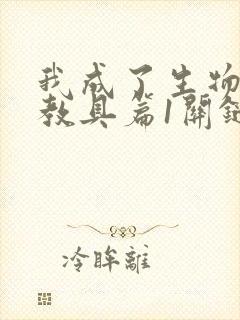 我成了生物
教具篇1開
冷眸離